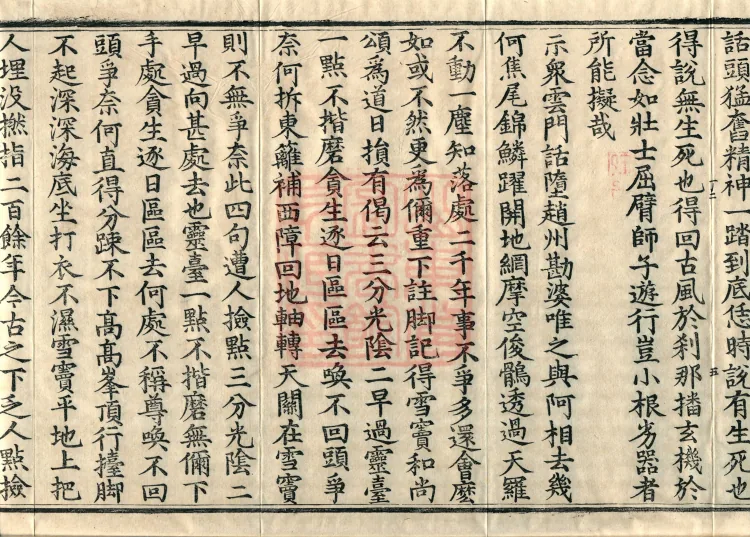 話頭猛奮精神一踏到底恁時說有生死也
得說無生死也得回古風於刹那播玄機於
當念如壯士屈臂師子遊行豈小根劣器者
所能擬哉
示衆雲門話墮趙州勘婆唯之與阿相去幾
何焦尾錦鱗躍開地網摩空俊鶻透過天羅
不動一塵知落處二千年事不爭多還會麼
如或不然更爲儞重下註脚記得雪竇和尚
頌爲道日損有偈云三分光陰二早過靈臺
一點不揩磨貪生逐日區區去喚不回頭爭
奈何拆東籬補西障回地軸轉天關在雪竇
則不無爭奈此四句遭人撿點三分光陰二
早過向甚處去也靈臺一點不揩磨無儞下
手處貪生逐日區區去何處不稱尊喚不回
頭爭奈何直得分踈不下髙髙峯頂行擡脚
不起深深海底坐打衣不濕雪竇平地上把
人埋没撚指二百餘年今古之下乏人點撿